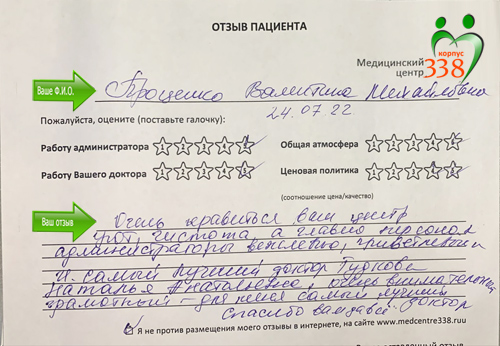 ОТЗЫВ ПАЦИЕНТА
корпус
Медицинский
центр 338
Ваше Ф.И.О.
Проценко Валентина Михайловна
24.07.22
Пожалуйста, оцените (поставьте галочку):
Работу администратора 1 2 3 4 5
Общая атмосфера 1 2 3 4 5
Работу Вашего доктора 1 2 3 4 5
Ценовая политика 1 2 3 4 5
(соотношение цена/качество)
Ваш отзыв
Очень нравиться ваш центр
уют, чистота, а главно персонал
администраторы вежливые, приветливые
И самый лучший доктор Гудкова
Наталья Анатольевна, очень внимательный
грамотный - для меня самый лучший
Спасибо вам доктор
Я не против размещения моего отзыва в интернете, на сайте www.medcentre338.ruu